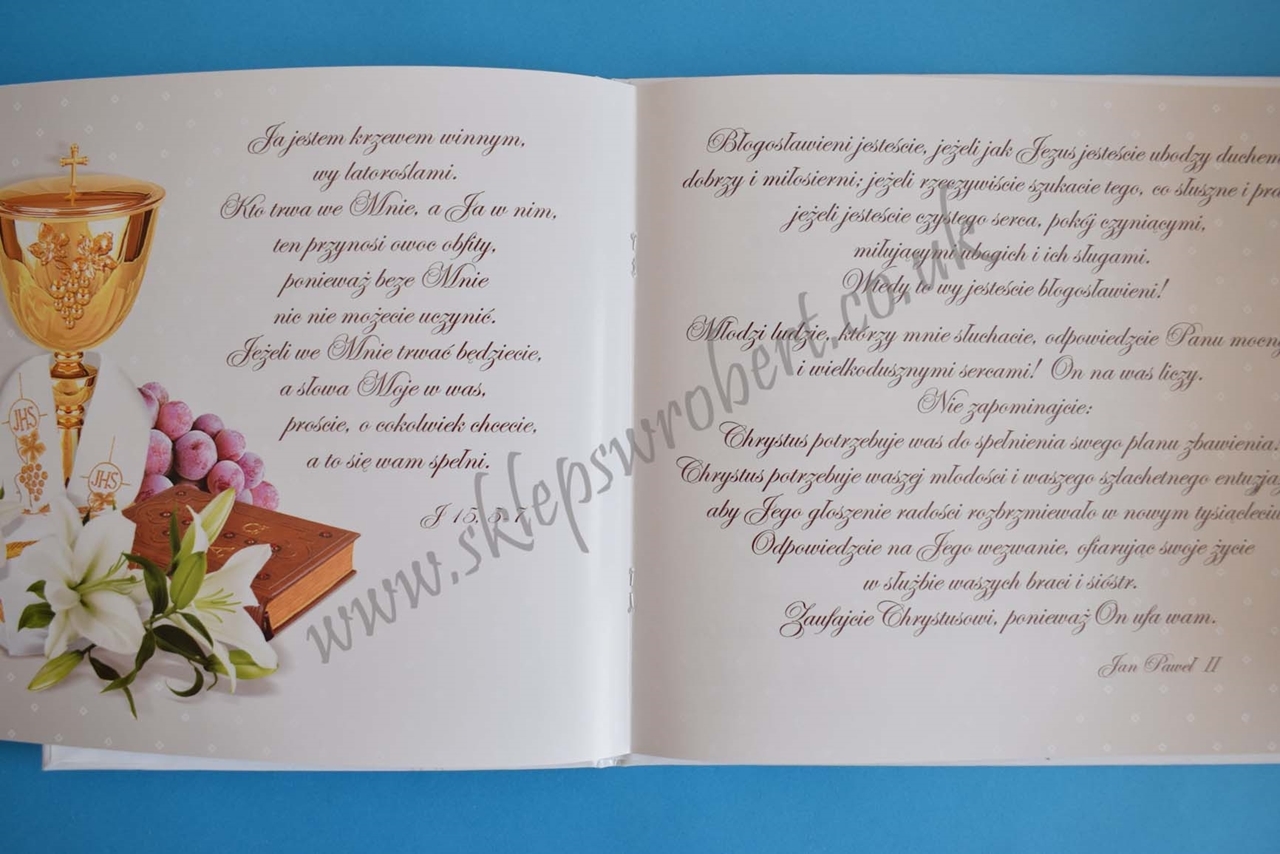 Ja jestem krzewem winnym,
wy latoroślami.
Kto trwa we Mnie, a Ja w nim,
ten przynosi owoc obfity,
ponieważ beze Mnie
nic nie możecie uczynić.
Jeżeli we Mnie trwać będziecie,
a słowa Moje w was,
proście, o cokolwiek chcecie,
a to się wam spełni.
J 15, 5-7
JHS
JHS
Błogosławieni jesteście, jeżeli jak Jezus jesteście ubodzy duchem
dobrzy i miłosierni; jeżeli rzeczywiście szukacie tego, co słuszne i
jeżeli jesteście czystego serca, pokój czyniącymi,
miłującymi ubogich i ich sługami.
Wtedy to wy jesteście błogosławieni!
Młodzi ludzie, którzy mnie słuchacie, odpowiedzcie Panu
i wielkodusznymi sercami! On na was liczy.
Nie zapominajcie:
Chrystus potrzebuje was do spełnienia swego planu zbawienia.
Chrystus potrzebuje waszej młodości i waszego szlachetnego
aby Jego głoszenie radości rozbrzmiewało w nowym
Odpowiedzcie na Jego wezwanie, ofiarując swoje życie
w służbie waszych braci i sióstr.
Zaufajcie Chrystusowi, ponieważ On ufa wam.
Jan Paweł II
www.sklepswrobert.co.uk